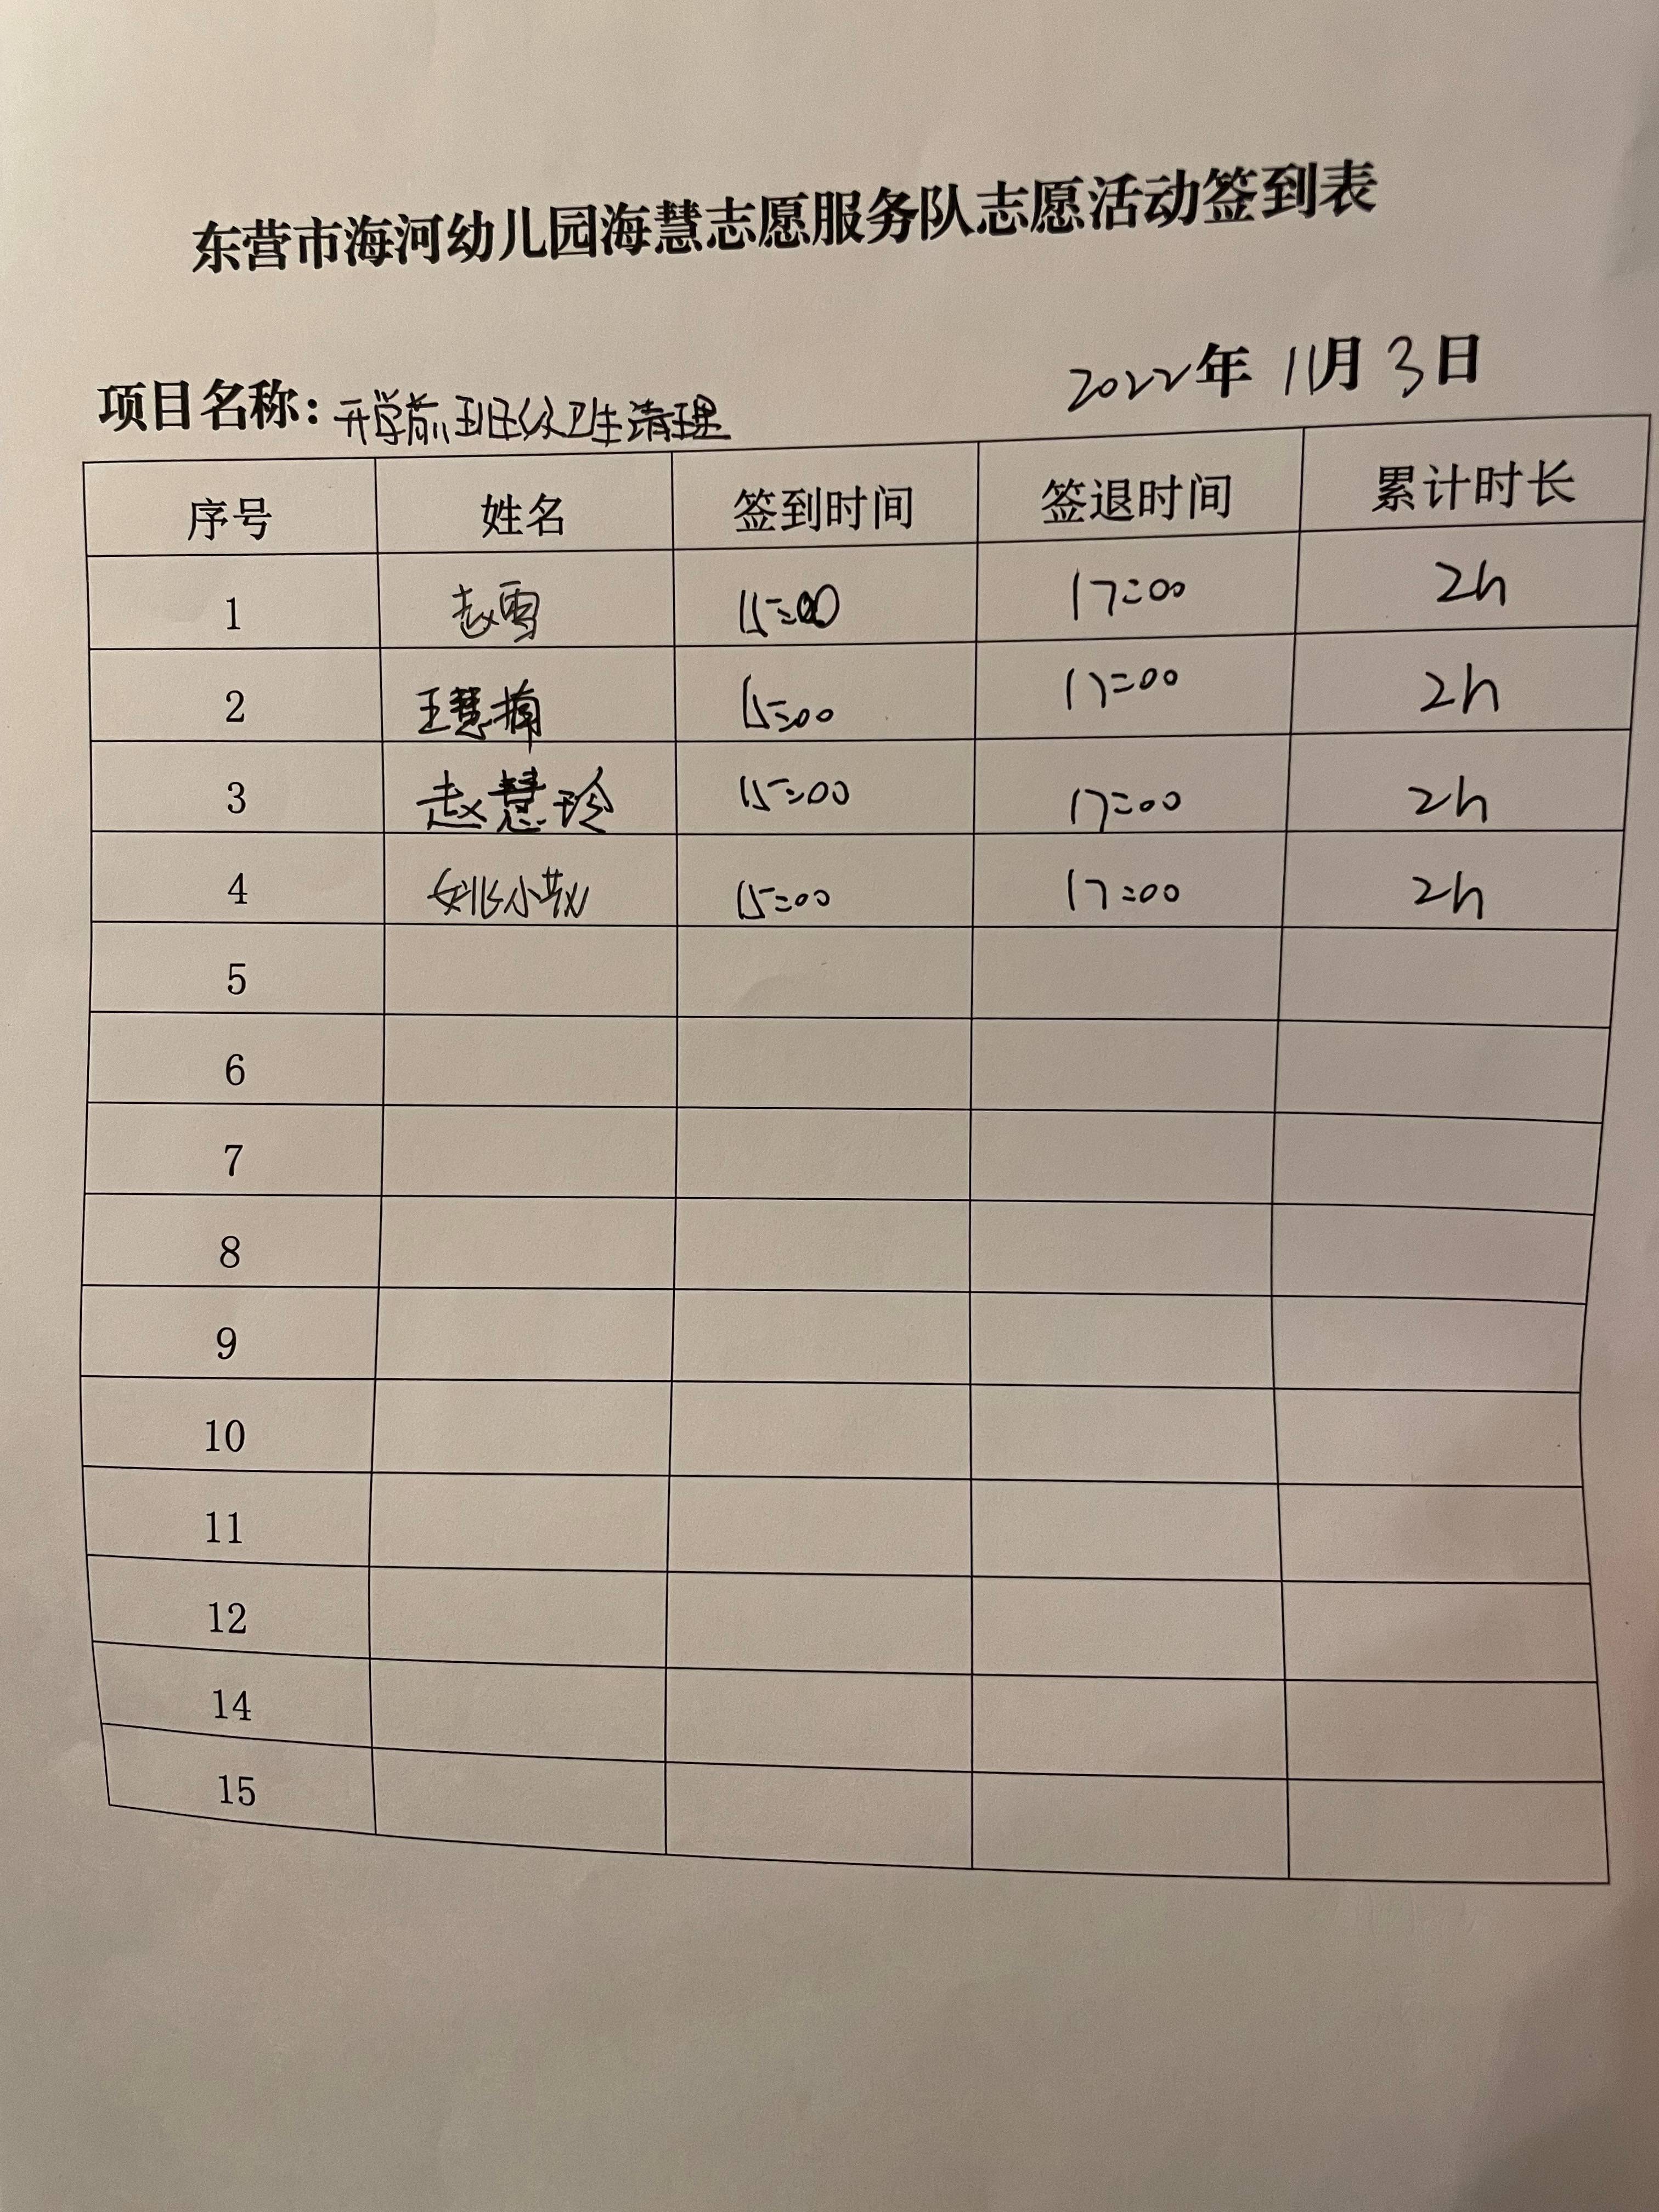 东营市海河幼儿园海慧志愿服务队志愿活动签到表
2022年 11月 3日
项目名称：开学前班级卫生清理
序号 姓名 签到时间 签退时间 累计时长
1 赵雪 15:00 17:00 2h
2 王慧楠 15:00 17:00 2h
3 赵慧玲 15:00 17:00 2h
4 姚小 15:00 17:00 2h
5
6
7
8
9
10
11
12
14
15